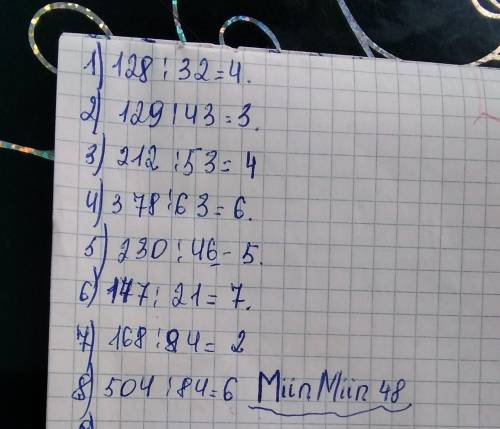 1) 128 : 32 = 4.
2) 129 : 43 = 3.
3) 212 : 53 = 4
4) 378 : 63 = 6.
5) 230 : 46 - 5.
6) 147 : 21 = 7.
7) 168 : 84 = 2
8) 504 : 84 = 6 Miin Miin 48